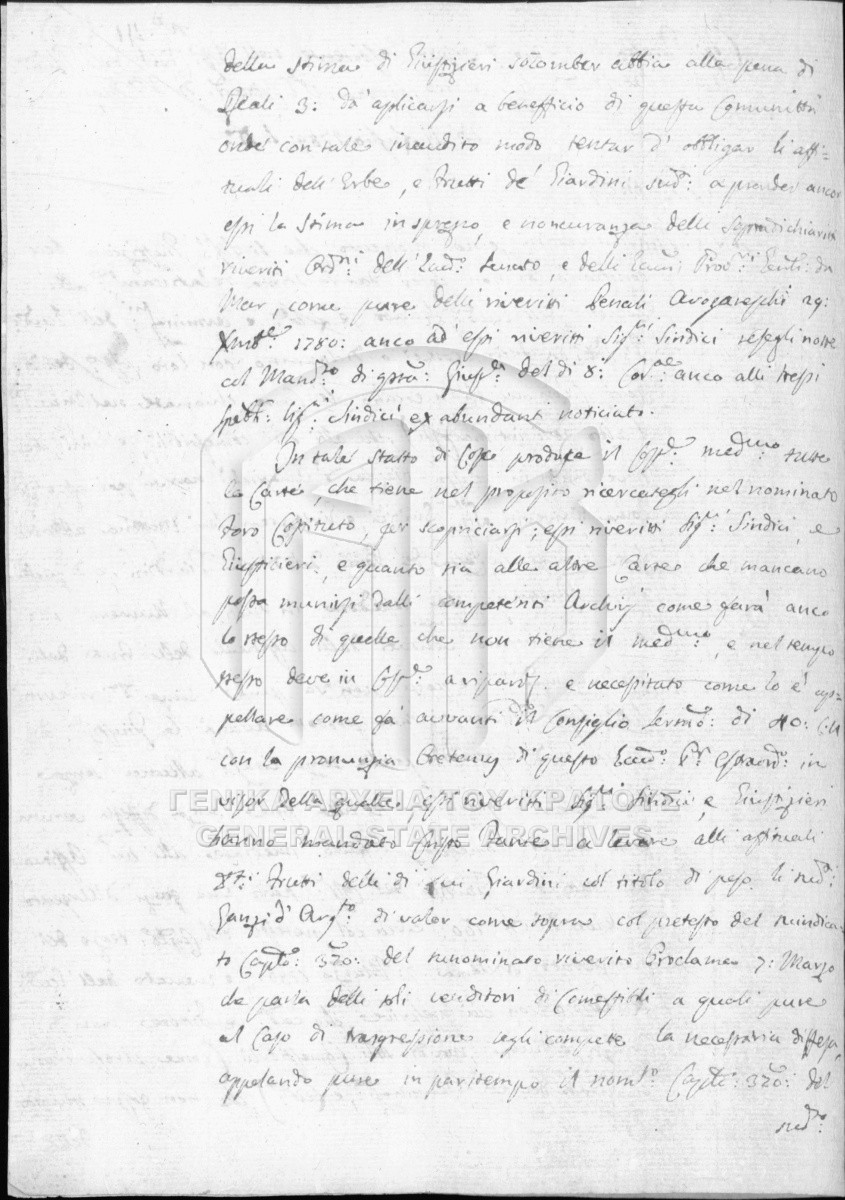 della stima di Giustizieri soccomber abbia alla pena di
Reali 3: da aplicarsi a benefficio di questa Comunittà
onde con tale inaudito modo tentar d'obbligar li affi-
tuali dell'Erbe, e Frutti de' Giardini sud.i a prender ancor
essi la stima in sprezzo, e noncuranza delli sopradichiariti
riveriti Ord.ni dell' Ecc.mo Senato, e delli Ecc.mi Prov.ri Gen.li: da
Mar, come pure delli riveriti Penali Avogareschi 29:
Xmb.e 1780: anco ad essi riveriti Sig.ri Sindici
col Mand.to di q.sta: Giusp.a del dì 8: Cor.te anco alli stessi
Sig.ri Sindici ex abundanti noticiato.
In tale statto di Cose produce il Cost.o med.mo tutte
le Carte, che tiene nel proposito ricercategli nel nominato
Foro Costituto, per scopricciarsi; essi riveriti Sig.ri Sindici, e
Giustizieri, e quanto sia alle altre Carte che mancano
possa munirsi dalli competenti Archivj come farà anco
lo stesso di quelle che non tiene il med.mo, e nel tempo
stesso deve in Cost.o e necessitato come lo è ap-
pellare come fà avvanti il Consiglio Serm.o: di 40: C:V
con la pronunzia Cretenus di questo Ecc.mo P.r Estraord.o: in
vigor della qualle, essi riveriti Sig.ri Sindici e, Giustizieri
hanno mandato questo Fante a levare alli afituali
Frutti delli di lui Giardini col titolo di pezo li sud.i:
d'Arg.to di valor come sopra col pretesto del suindica-
to Cap.lo: 320: del sunominato riverito Proclama 7: Marzo
che parla delli soli venditori di Comestibili a quali pure
al Caso di trasgressione segli compete la necessaria diffesa,
appelando pure in pari tempo il nom.to Cap.lo: 320: del
sud.to